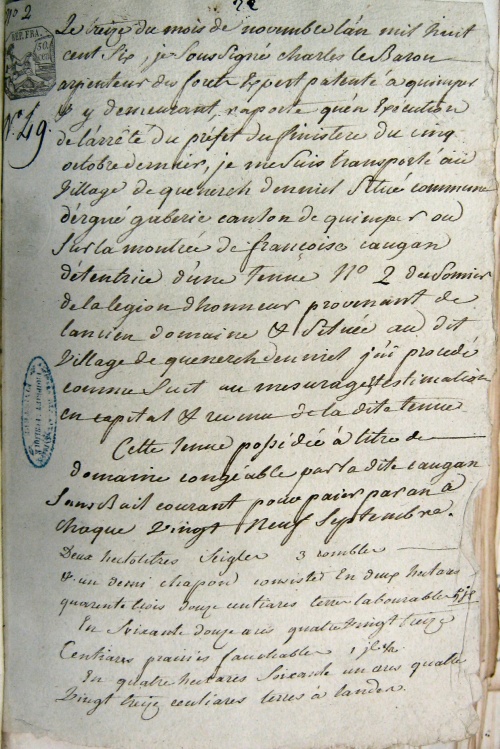 No 2
Le treize du mois de novembre l'an mil huit
cent six, je soussigné charles le Baron
arpenteur des forets Expert patenté a quimper
& y demeurant, raporte qu'en Execution
No 49.
de l'arrêté du préfet du finistere du cinq
octobre dernier, je me suis transporté au
Village de quenerch denniel Situé commune
d'ergué gaberic canton de quimper ou
Sur la montrée de françoise caugan
détentrice d'une tenue No 2 du Somier
de la legion d'honneur provenant de
l'ancien domaine & Située au dit
Village de quenerch denniel j'ai procedé
comme Suit au mesurage & estimation
en capital & revenu de la dite tenue
Cette tenue possédée à titre de
domaine congéable par la dite caugan
Sans Bail courant pour paier par an a
chaque Vingt Neuf Septembre.
Deux hectolitres Seigle 3 combles
& un demi chapon consiste En deux hectares
quarente trois douze centiares terre labourable
En Soixante douze ares quatre Vingt treize
Centiares prairies fauchable
En quatre hectares Soixante un ares quatre
Vingt treize centiares terres à landes.